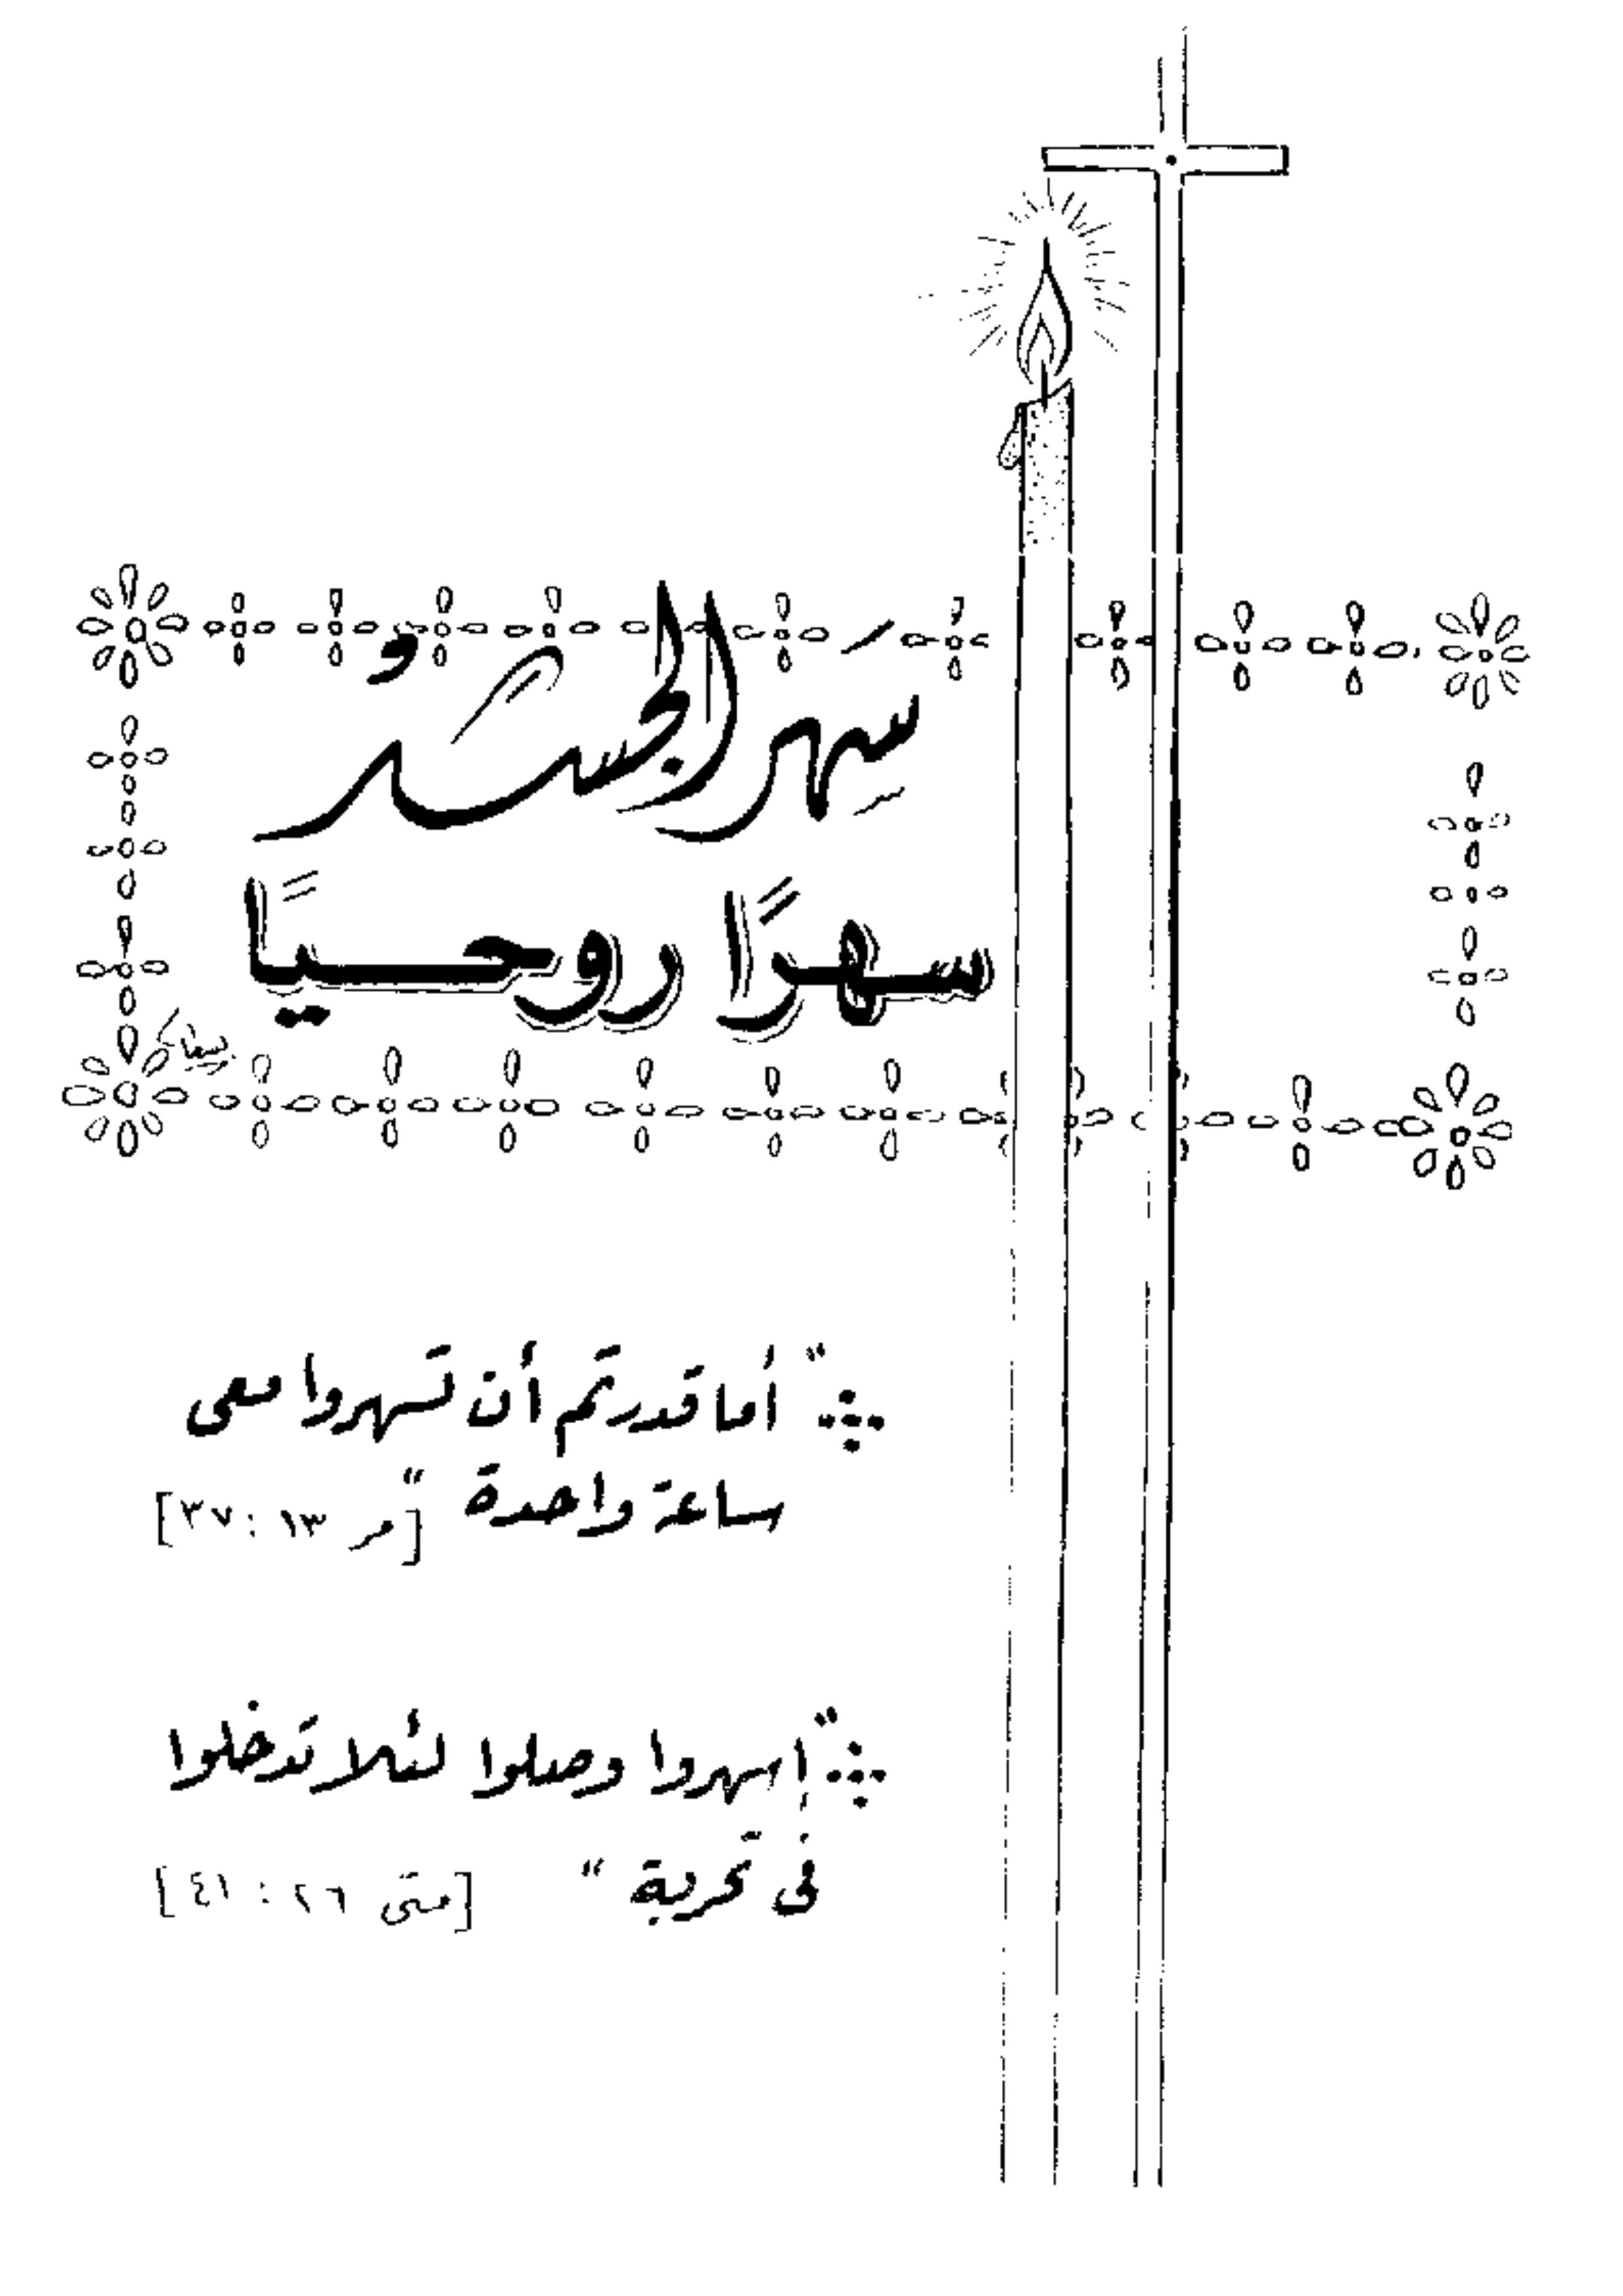 سَهَر الجسَدُ
سهرًا روحيًا
" أما قدرتم أن تسهروا معى
ساعة واحدة " [مر ١٣ : ٣٧]
" اسهروا وصلوا لئلا تدخلوا
فى تجربة " [متى ٢٦ : ٤١]